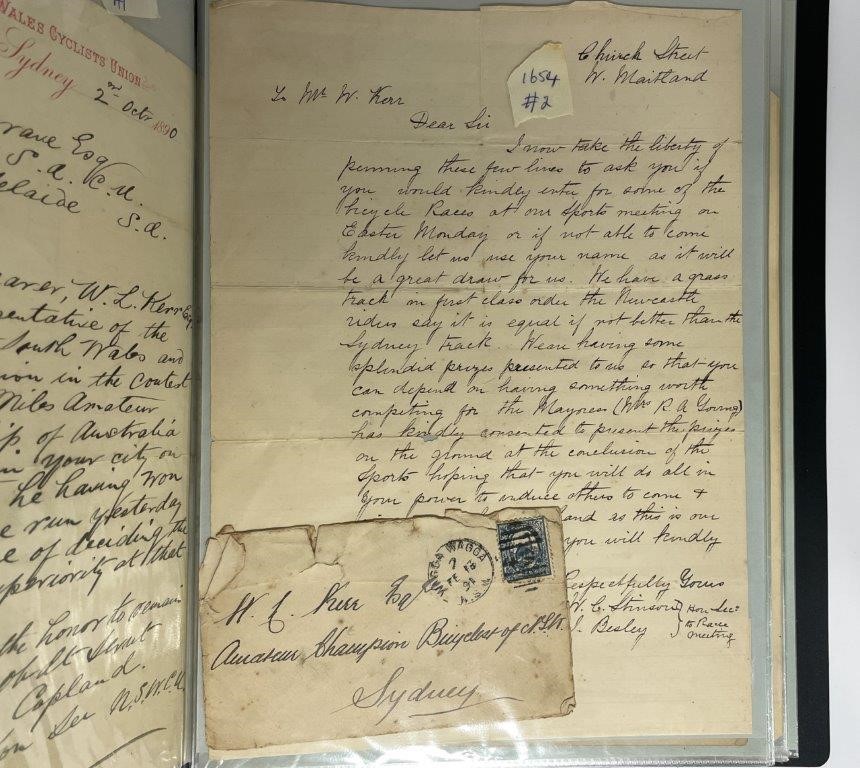 WALES CYCLISTS UNION
Sydney
2nd Octr 1890
Esq
S. A. C. U.
S. A.
W. L. Kerr Esq
sentative of the
South Wales and
in the contest
Miles Amateur
of Australia
in your city on
he having won
run yesterday
of deciding the
at that
the honor to remain
Sec N.S.W.C.U.
1654
#2
Church Street
W. Maitland
To Mr W. Kerr
Dear Sir
I now take the liberty of
penning these few lines to ask you if
you would kindly enter for some of the
bicycle Races at our Sports meeting on
Easter Monday or if not able to come
kindly let us use your name as it will
be a great draw for us. We have a grass
track in first class order the Newcastle
riders say it is equal if not better than the
Sydney track. We are having some
splendid prizes presented to us so that you
can depend on having something worth
competing for the Mayoress (Mrs R A Young)
has kindly consented to present the prizes
on the ground at the conclusion of the
Sports hoping that you will do all in
your power to induce others to come &
and as this is our
you will kindly
espectfully Yours
W. C. Stinson } Hon Secs
J. Besley } to Race
meeting
WAGGA WAGGA
7
FE 13
91
N.S.W
W. C. Kerr Esq
Amateur Champion Bicyclest of N.S.W.
Sydney